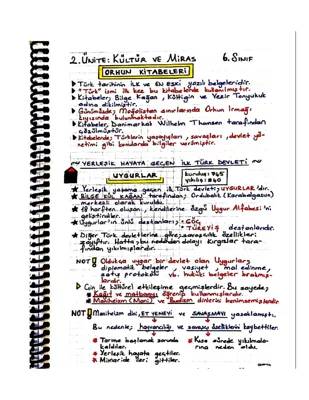 2. ÜNİTE: KÜLTÜR VE MİRAS 6. SINIF
ORHUN KİTABELERİ
Türk tarihinin ilk ve en eski yazılı belgeleridir.
"Türk" ismi ilk kez bu kitabelerde kullanılmıştır.
Kitabeler; Bilge Kağan, Kültigin ve Vezir Tonyukuk
adına dikilmiştir.
Günümüzde; Moğolistan sınırlarında Orhun Irmağı
kıyısında bulunmaktadır.
Kitabeler, Danimarkalı Wilhelm Thomsen tarafından
çözülmüştür.
Kitabelerde; Türklerin yaşayışları, savaşları, devlet yö-
netimi gibi konularda bilgiler verilmiştir.
~ YERLEŞİK HAYATA GEÇEN İLK TÜRK DEVLETİ ~
UYGURLAR
kuruluş: 745
yıkılış: 840
Yerleşik yaşama geçen ilk Türk devleti; UYGURLAR'dır.
BİLGE KÜL KAĞAN tarafından; Ordubalık (Karabalgasun)
merkezli olarak kuruldu.
harften oluşan, kendilerine özgü Uygur Alfabesi'ni
geliştirdiler.
Uygurlar'ın ünlü destanları; GÖÇ,
TÜREYİŞ destanlarıdır.
Diğer Türk devletlerine göre; savaşçılık özellikleri
zayıftır. Hatta; bu nedenden dolayı Kırgızlar tara-
fından yıkılmışlardır.
NOT! Oldukça uygar bir devlet olan Uygurlar;
diplomatik belgeler, vasiyet, mal edinme,
şata protokol vb. hukuki belgeler bırakmış-
lardır.
Çin ile kültürel etkileşime geçmişlerdir. Bu sayede;
Kağıt ve matbaayı öğrenip kullanmışlardır.
Maniheizm (Mani) ve "Budizm dinlerini benimsemişlerdir.
NOT! Maniheizm dini, ET YEMEYİ ve SAVAŞMAYI yasaklamıştı.
Bu nedenle; hayvancılığı ve savaşçı özelliklerini kaybettiler.
Tarıma başlamak zorunda kaldılar.
Yerleşik hayata geçtiler.
Mimaride ileri gittiler.
Kısa sürede yıkılmala-
rına neden oldu.